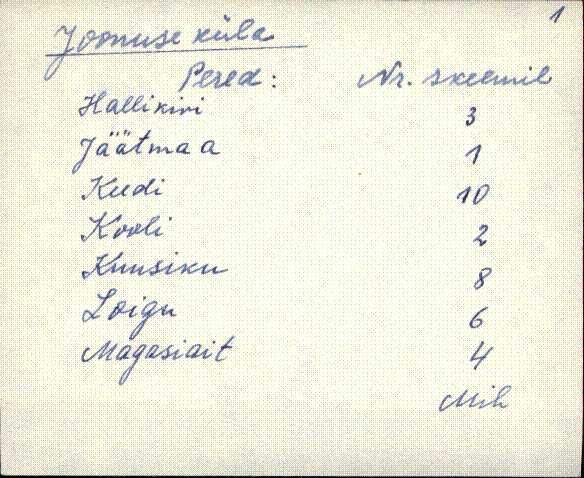 1
Joonuse küla
Pered: Nr. skeemil
Hallikivi 3
Jäätmaa 1
Keedi 10
Kooli 2
Kuusiku 8
Loigu 6
Magasiait 4